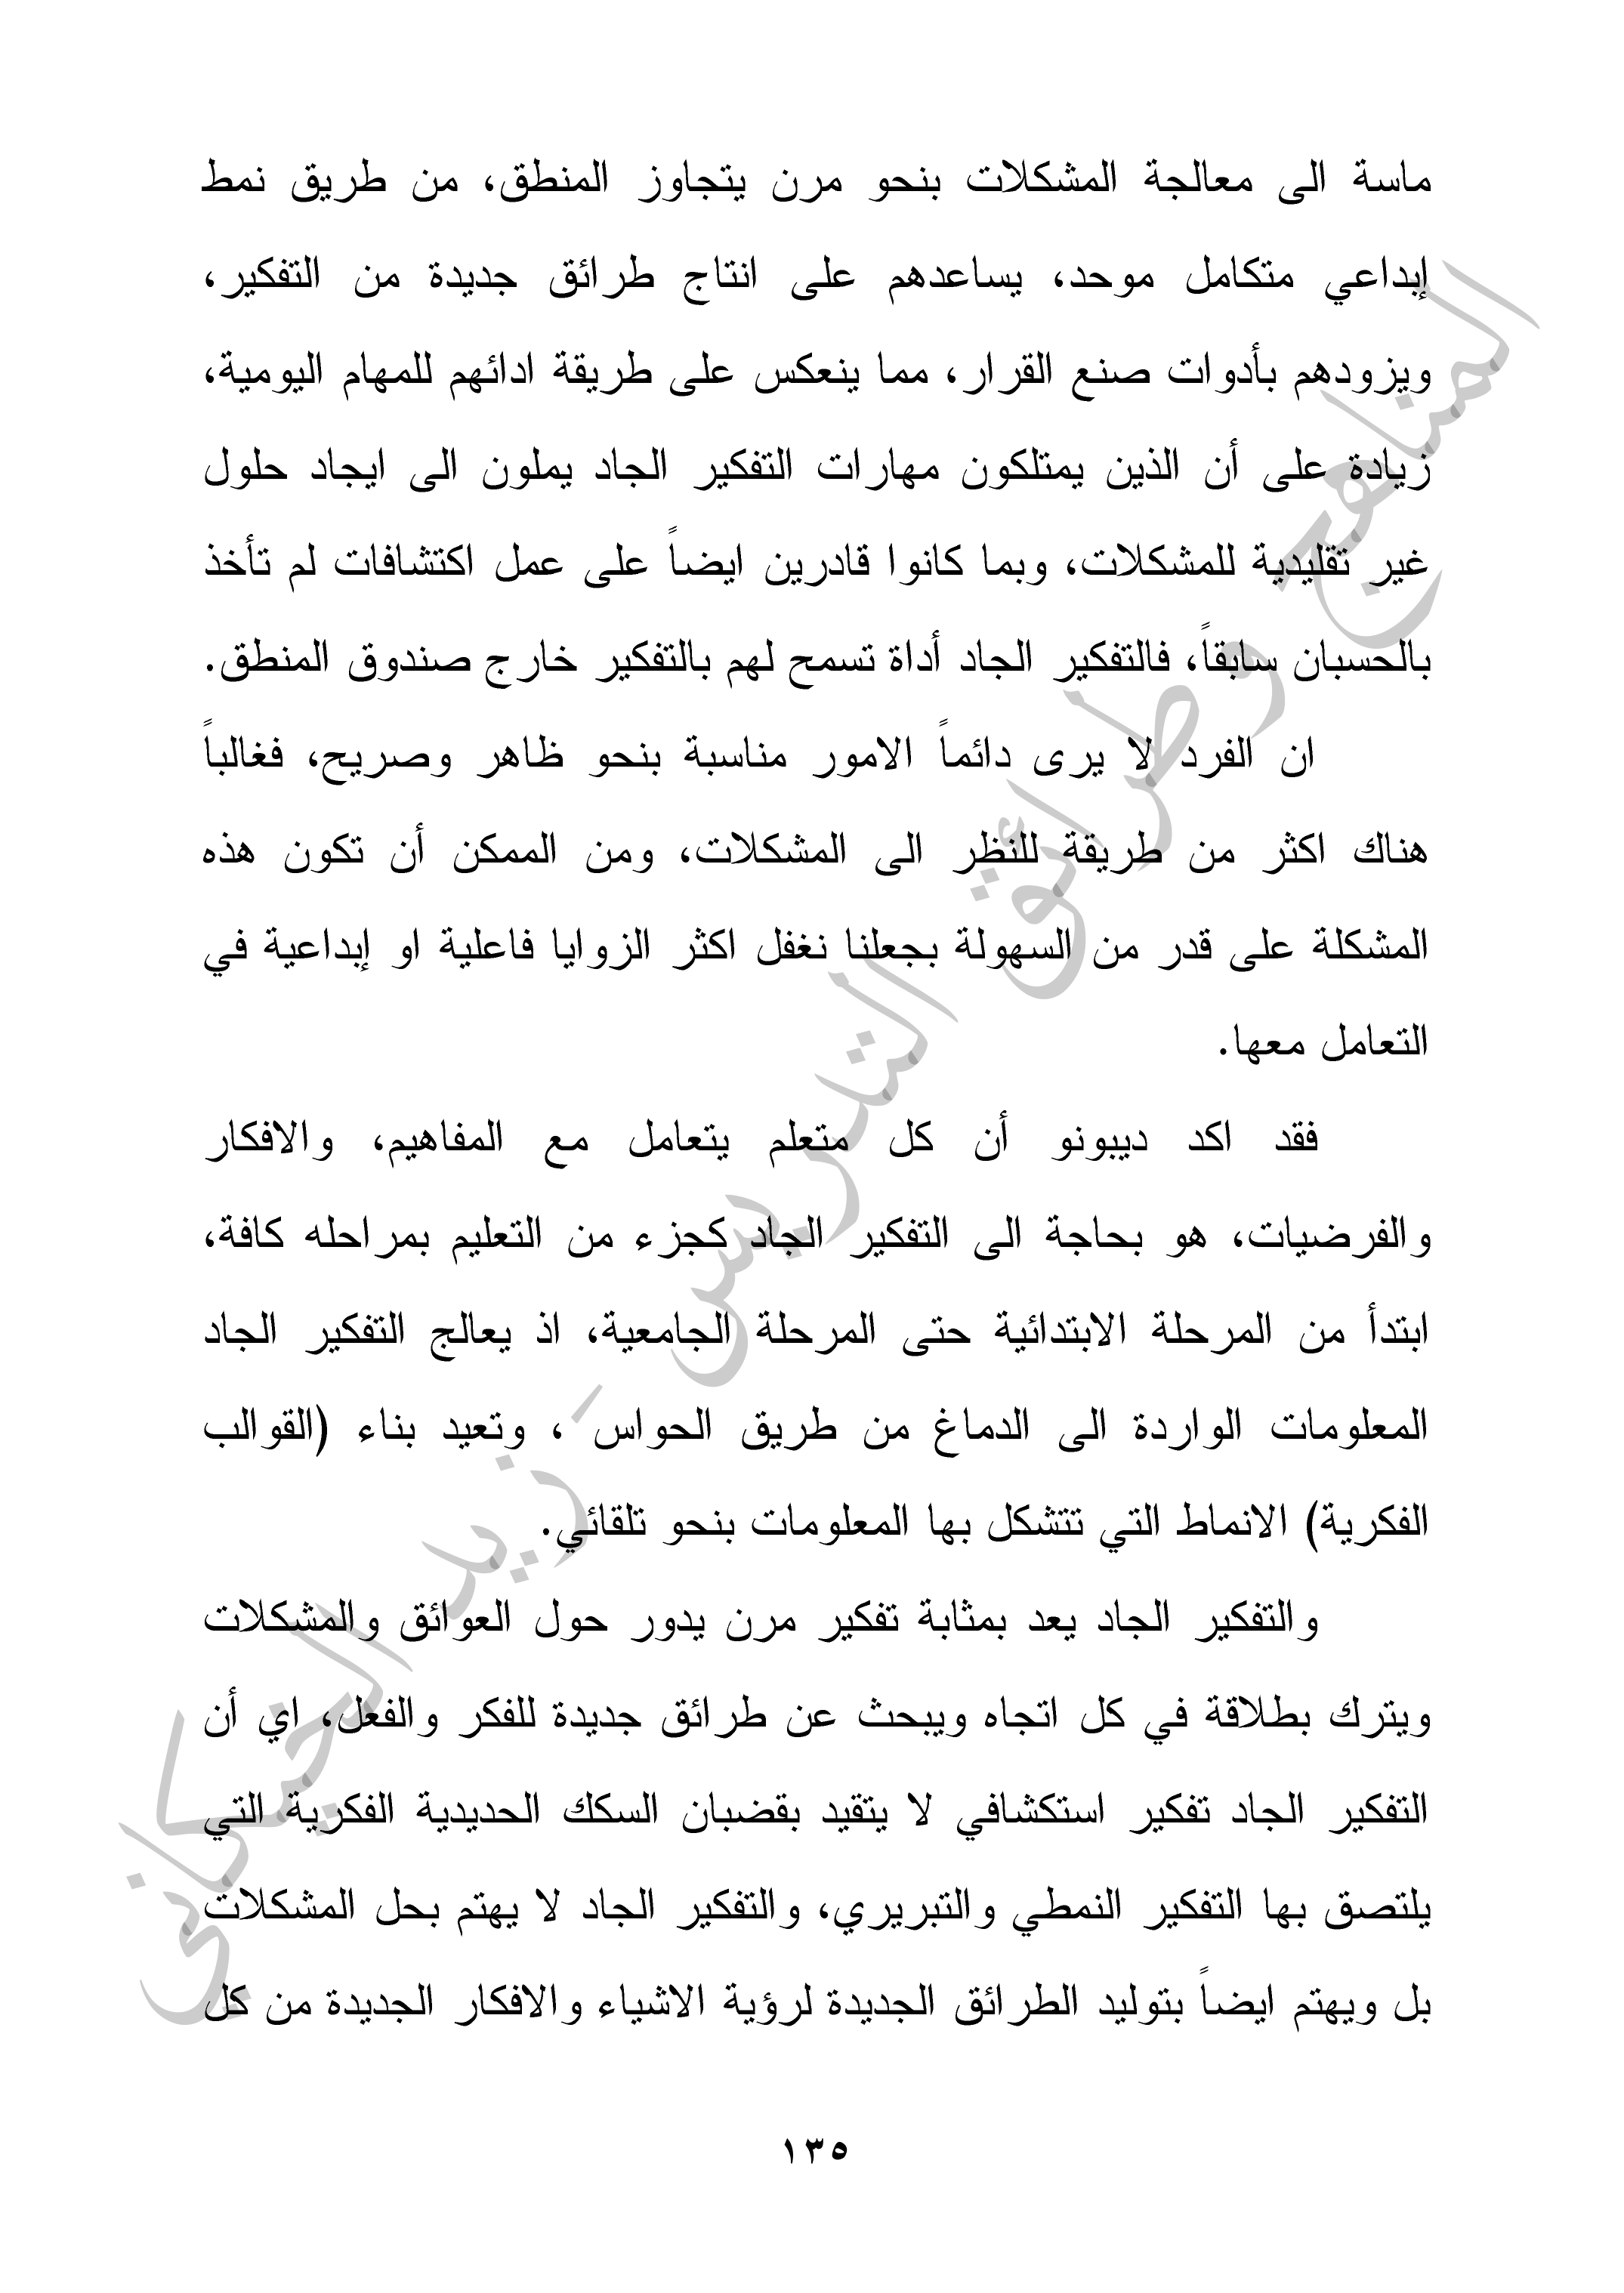 ماسة الى معالجة المشكلات بنحو مرن يتجاوز المنطق، من طريق نمط
إبداعي متكامل موحد، يساعدهم على انتاج طرائق جديدة من التفكير،
ويزودهم بأدوات صنع القرار، مما ينعكس على طريقة ادائهم للمهام اليومية،
زيادة على أن الذين يمتلكون مهارات التفكير الجاد يملون الى ايجاد حلول
غير تقليدية للمشكلات، وبما كانوا قادرين ايضاً على عمل اكتشافات لم تأخذ
بالحسبان سابقاً، فالتفكير الجاد أداة تسمح لهم بالتفكير خارج صندوق المنطق.
ان الفرد لا يرى دائماً الامور مناسبة بنحو ظاهر وصريح، فغالباً
هناك اكثر من طريقة للنظر الى المشكلات، ومن الممكن أن تكون هذه
المشكلة على قدر من السهولة بجعلنا نغفل اكثر الزوايا فاعلية او إبداعية في
التعامل معها.
فقد اكد ديبونو أن كل متعلم يتعامل مع المفاهيم، والافكار
والفرضيات، هو بحاجة الى التفكير الجاد كجزء من التعليم بمراحله كافة،
ابتدأ من المرحلة الابتدائية حتى المرحلة الجامعية، اذ يعالج التفكير الجاد
المعلومات الواردة الى الدماغ من طريق الحواس ، وتعيد بناء (القوالب
الفكرية) الانماط التي تتشكل بها المعلومات بنحو تلقائي.
والتفكير الجاد يعد بمثابة تفكير مرن يدور حول العوائق والمشكلات
ويترك بطلاقة في كل اتجاه ويبحث عن طرائق جديدة للفكر والفعل، اي أن
التفكير الجاد تفكير استكشافي لا يتقيد بقضبان السكك الحديدية الفكرية التي
يلتصق بها التفكير النمطي والتبريري، والتفكير الجاد لا يهتم بحل المشكلات
بل ويهتم ايضاً بتوليد الطرائق الجديدة لرؤية الاشياء والافكار الجديدة من كل
١٣٥
المناهج وطرائق التدريس - زيد الخيكاني